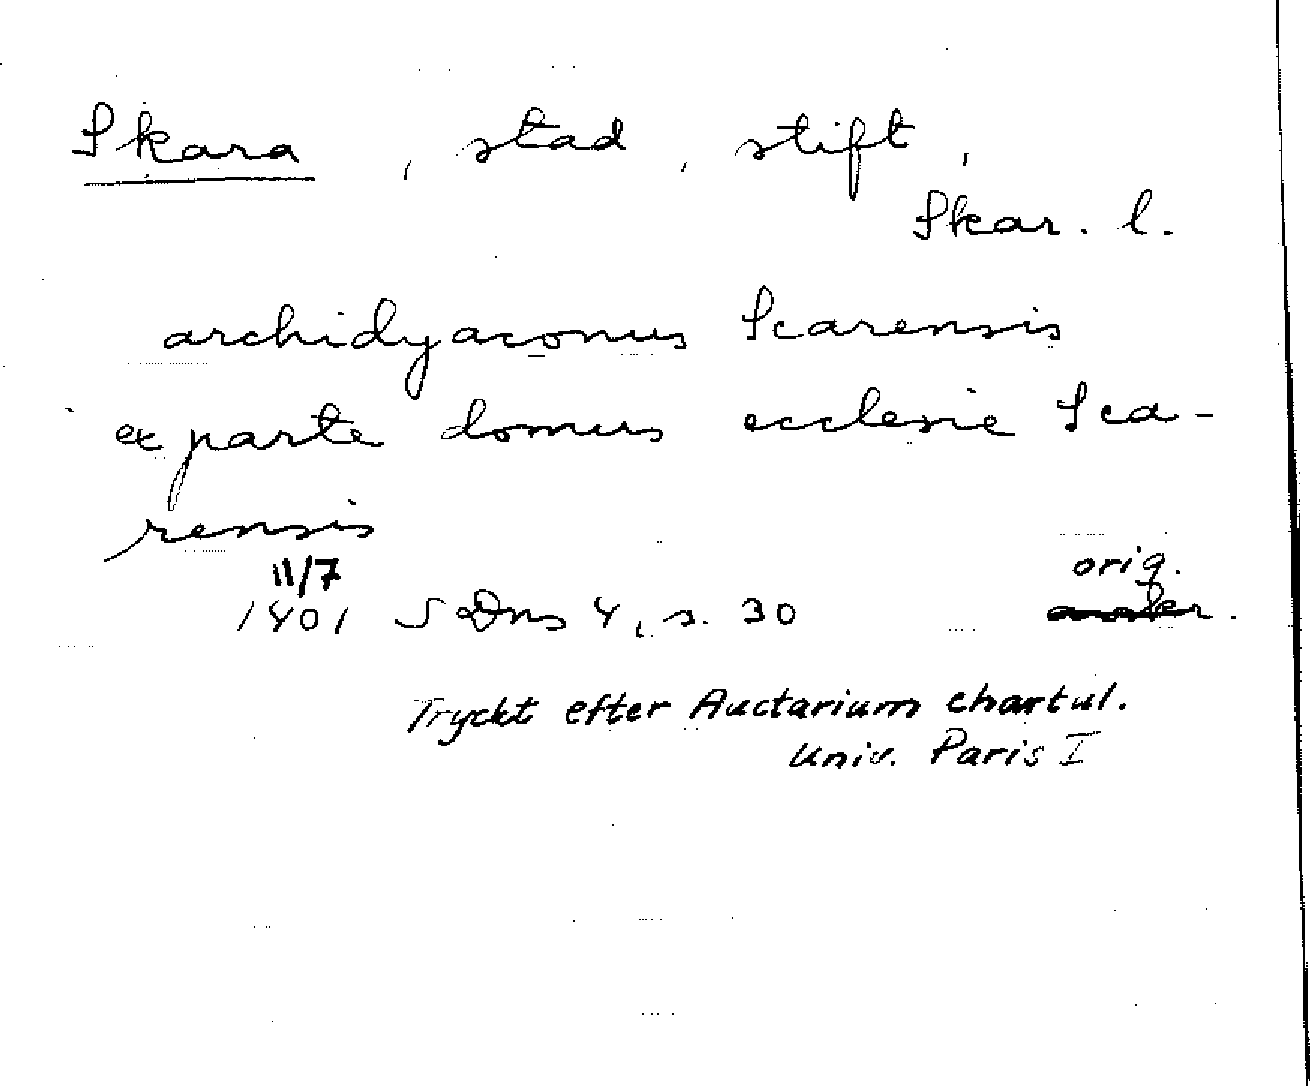 Skara, stad, stift,
Skar. l.
archidyaconus Scarensis
ex parte domus ecclesie Sca-
rensis
11/7
1401 SDns 4, s. 30
orig.
Tryckt efter Auctarium chartul.
Univ. Paris I